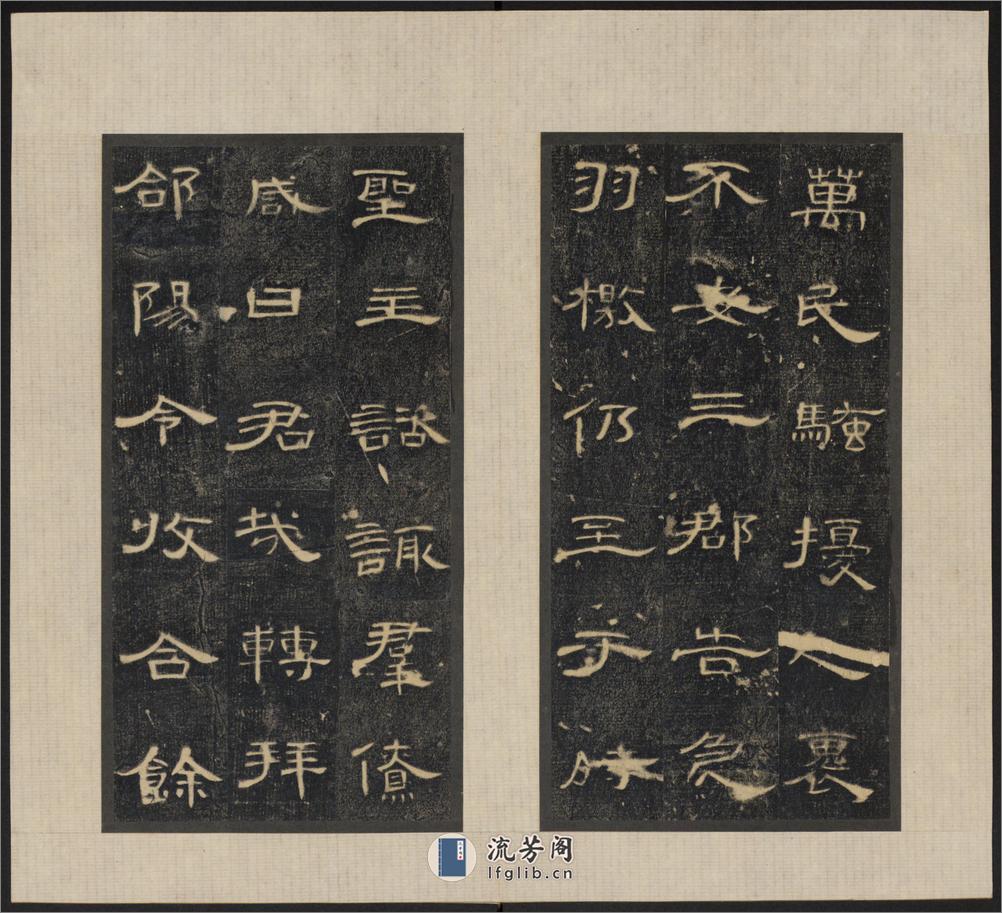 萬民騷擾人裹
不安三郡告急
羽檄仍至于時
聖主諮諏羣僚
咸曰君哉轉拜
郃陽令收合餘
流芳阁
lfglib.cn